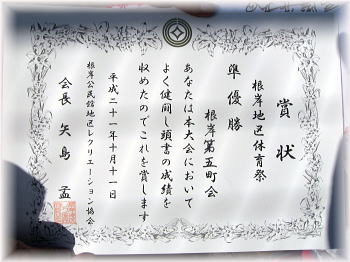 賞状
根岸地区体育祭
準優勝
根岸第五町会
あなたは本大会において
よく健闘し頭書の成績を
収めたのでこれを賞します
平成二十一年十月十一日
根岸公民館地区レクリエーション協会
会長 矢島 孟